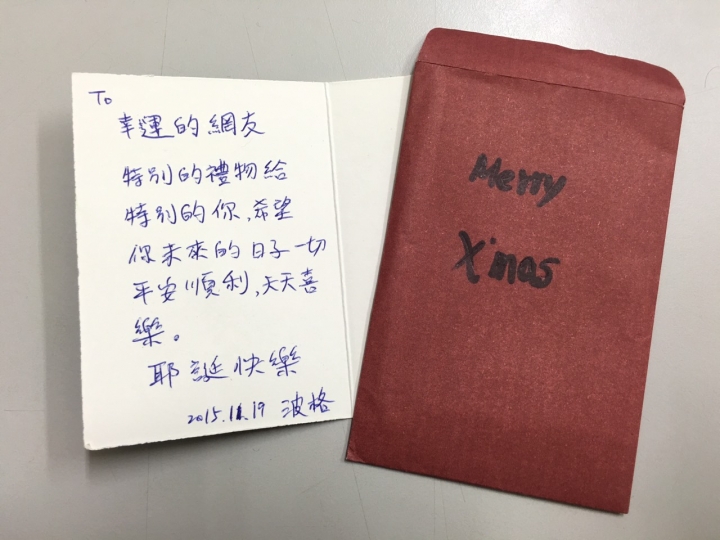 To
幸運的網友
特別的禮物給
特別的你,希望
你未來的日子一切
平安順利,天天喜
樂。
耶誕快樂
2015.11.19 波格
Merry
X'mas